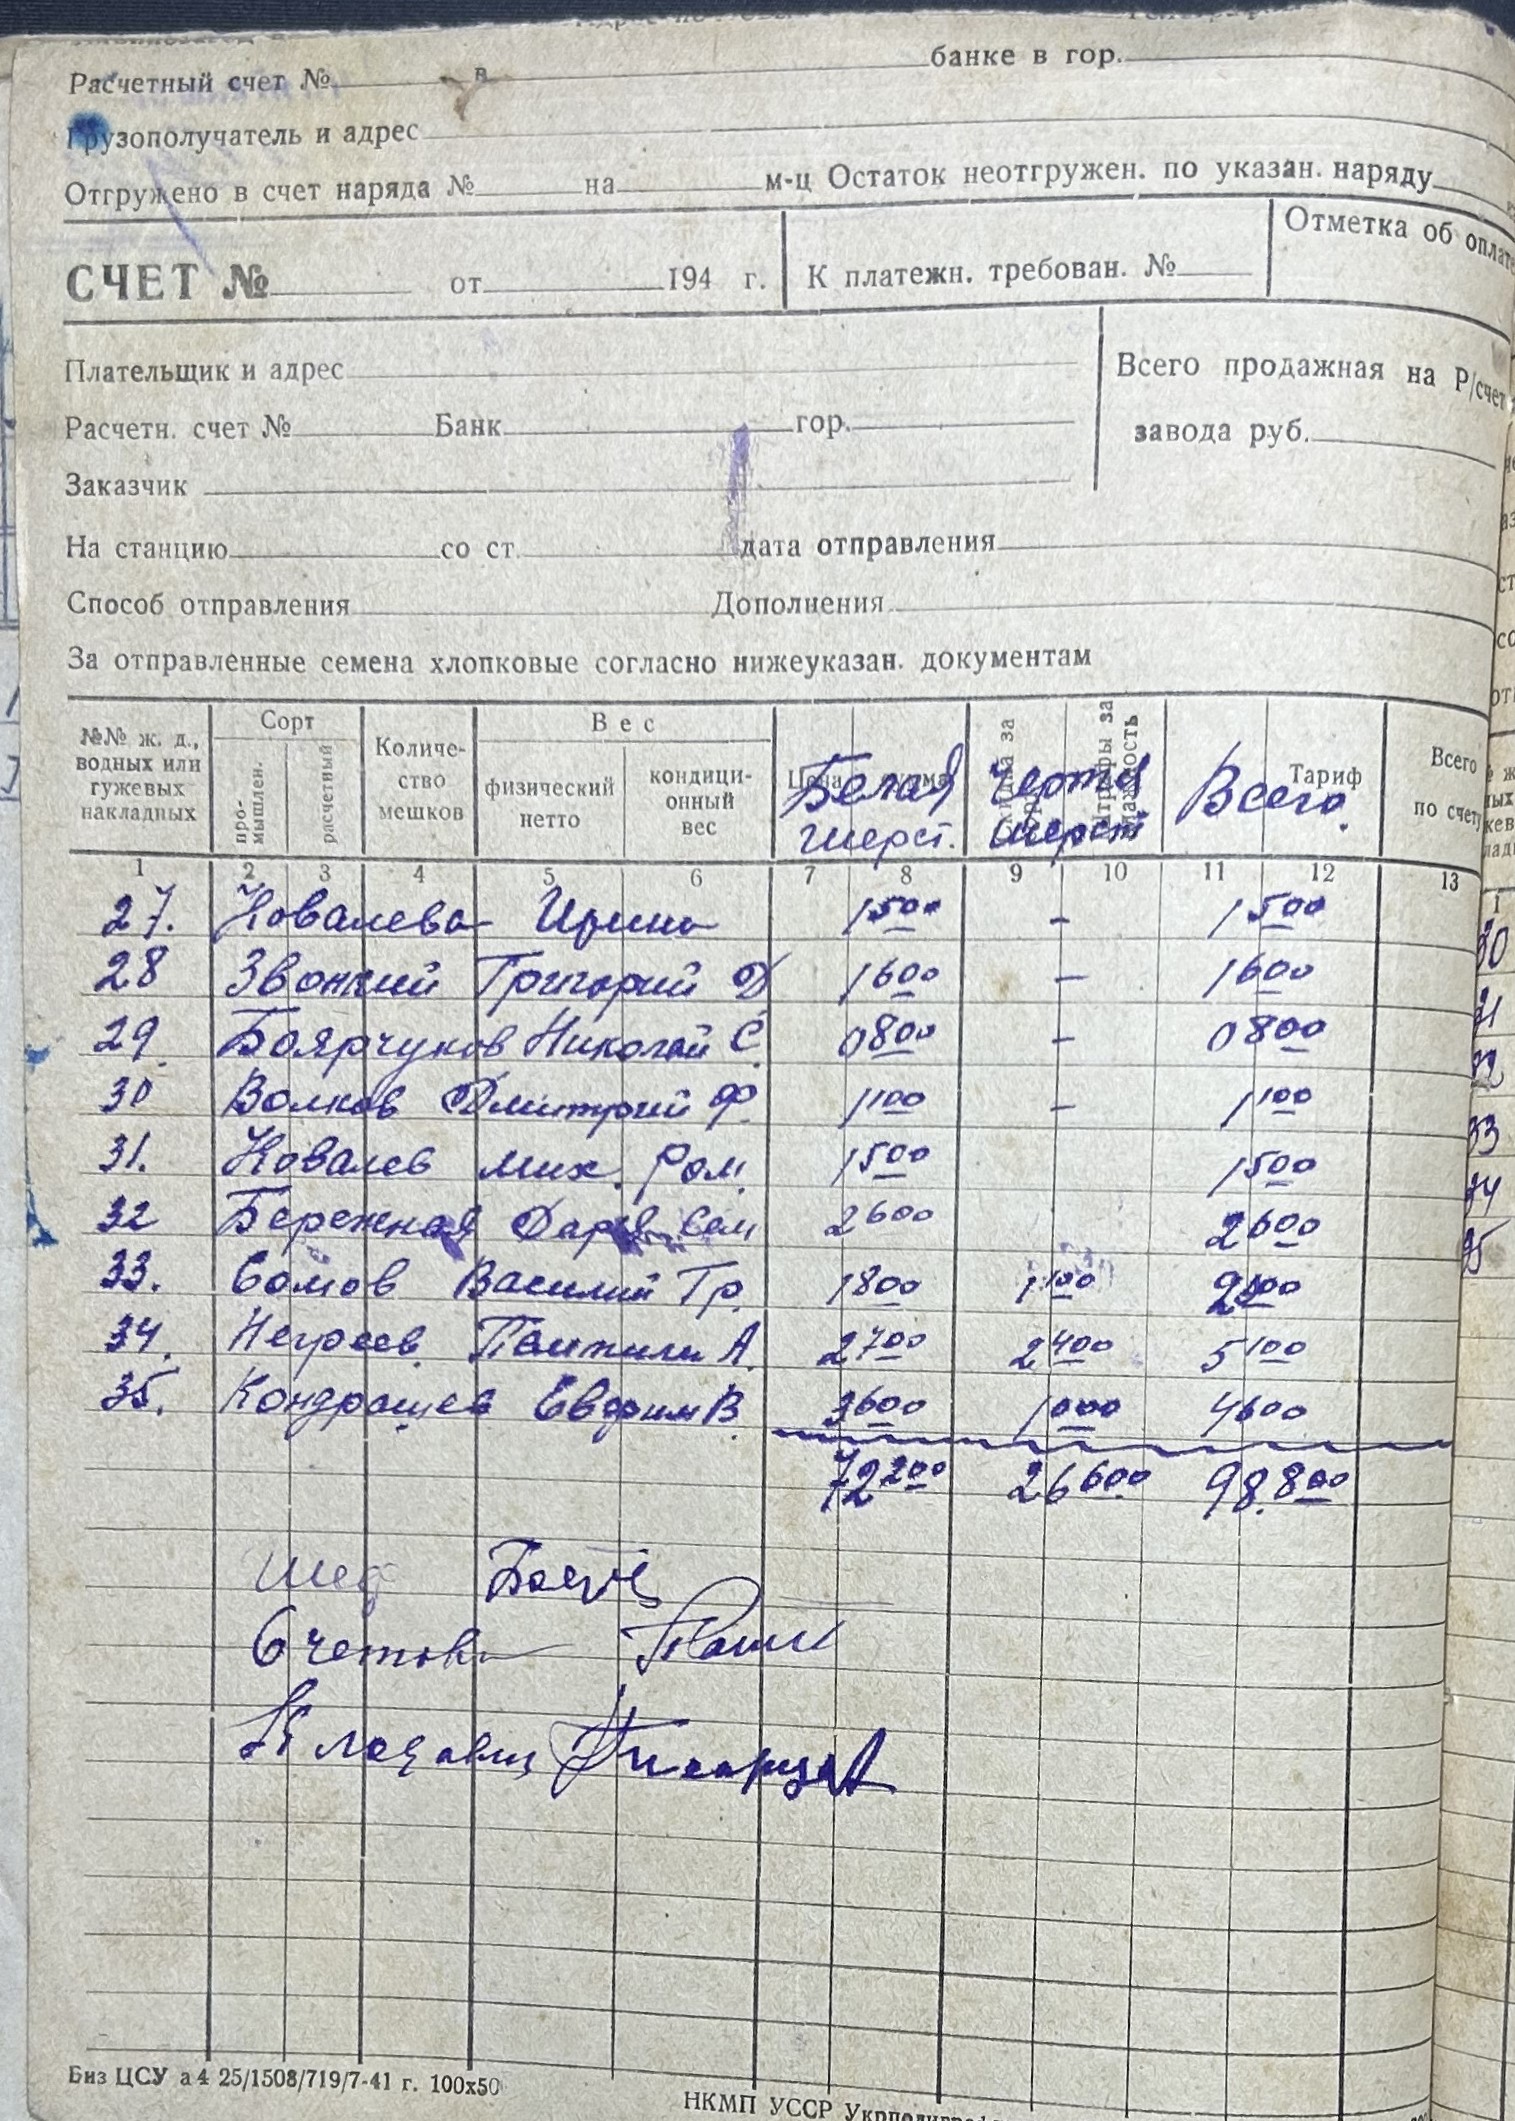 Расчетный счет № в банке в гор.
Грузополучатель и адрес
Отгружено в счет наряда № на м-ц Остаток неотгружен. по указан. наряду
СЧЕТ № от 194 г. К платежн. требован. № Отметка об оплате
Плательщик и адрес
Всего продажная на Р/счет
Расчетн. счет № Банк гор.
завода руб.
Заказчик
На станцию со ст. дата отправления
Способ отправления Дополнения
За отправленные семена хлопковые согласно нижеуказан. документам
№№ ж. д., водных или гужевых накладных Сорт про-мышлен. расчетный Количе-ство мешков Вес физический нетто кондици-онный вес Цена Тариф Всего по счету
Белая шерст. Черная шерст Всего.
1 2 3 4 5 6 7 8 9 10 11 12 13
27. Ковалева Ирина 1500 - 1500
28 Звонкий Григорий Д 1600 - 1600
29. Боярчуков Николай С. 0800 - 0800
30 Волков Дмитрий Ф. 1100 - 1100
31. Ковалев Мих. Ром. 1500 1500
32 Бережная Дарья Сем 2600 2600
33. Сомов Василий Гр. 1800 1100 2900
34. Негреев 2700 2400 5100
35. Кондращев Евдоким В. 3600 1000 4600
72200 26600 98.800
Счетов
Кладовщ
Биз ЦСУ а4 25/1508/719/7-41 г. 100х50
НКМП УССР